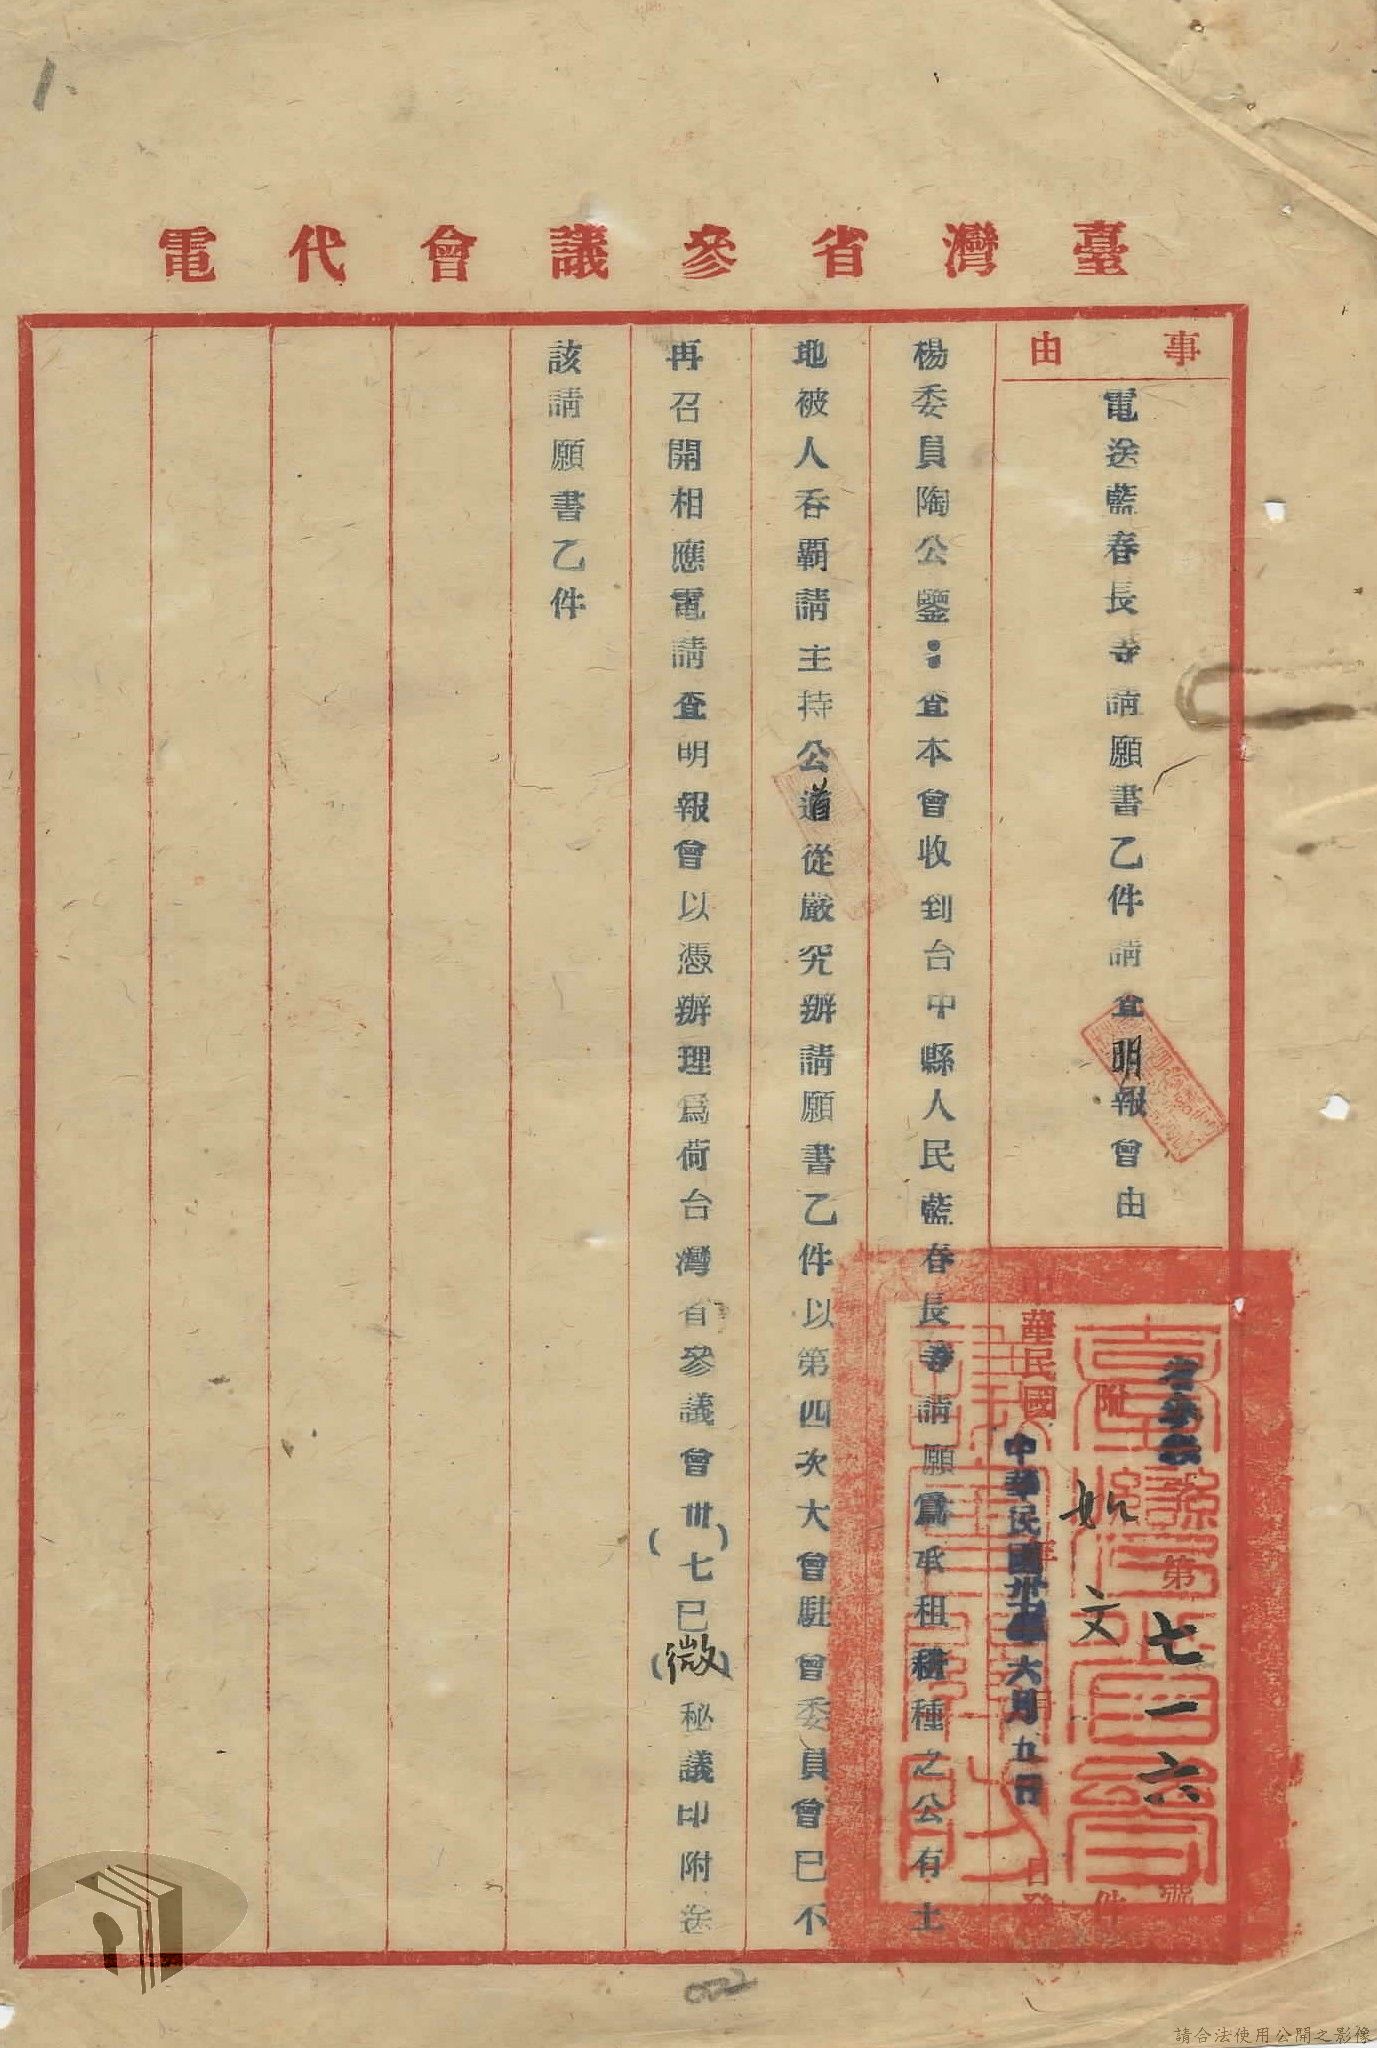 臺灣省參議會代電
事由
電送藍春長等請願書乙件請查明報會由
省參議
第七一六號
附件
如文
中華民國 年 月 日發
中華民國卅七年六月五日
楊委員陶公鑒：查本會收到台中縣人民藍春長等請願爲承租耕種之公有土
地被人吞覇請主持公道從嚴究辦請願書乙件以第四次大會駐會委員會已不
再召開相應電請查明報會以憑辦理爲荷台灣省參議會(卅)七巳(微)秘議印附送
該請願書乙件
002
請合法使用公開之影像